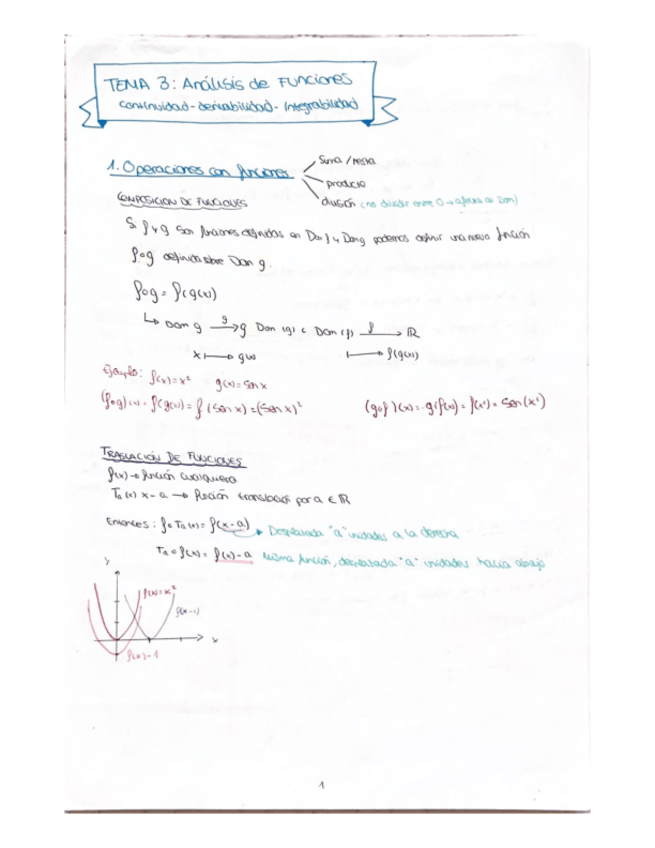 TEMA 3: Análisis de Funciones
Continuidad - derivabilidad - Integrabilidad
1. Operaciones con funciones
Suma / resta
producto
división (no dividir entre 0 → afecta al Dom)
COMPOSICIÓN DE FUNCIONES
Si f y g son funciones definidas en Dom f y Dom g podemos definir una nueva función
f∘g definida sobre Dom g.
f∘g = f(g(x))
↳ Dom g →g g Dom (g) ⊂ Dom (f) →f ℝ
x ↦ g(x) ↦ f(g(x))
Ejemplo: f(x) = x² g(x) = sen x
(f∘g)(x) = f(g(x)) = f(sen x) = (sen x)² (g∘f)(x) = g(f(x)) = f(x²) = sen(x²)
TRASLACIÓN DE FUNCIONES
f(x) → función cualquiera
Ta(x) x-a → función translación por a ∈ ℝ
Entonces: f∘Ta(x) = f(x-a) → Desplazada "a" unidades a la derecha
Ta∘f(x) = f(x)-a misma función, desplazada "a" unidades hacia abajo
y
f(x)=x²
f(x-1)
x
f(x)-1
1